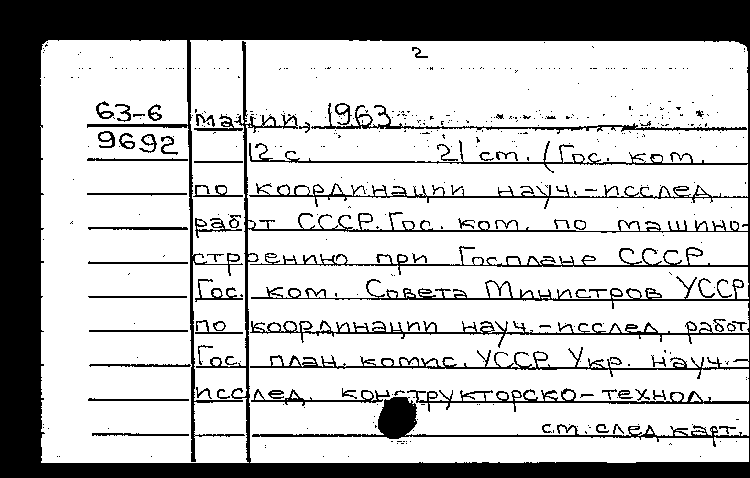 2
63-6 мации, 1963
9692 12 с. 21 см. (Гос. ком.
по координации науч.-исслед.
работ СССР. Гос. ком. по машино-
строению при Госплане СССР.
Гос. ком. Совета Министров УССР
по координации науч.-исслед. работ.
Гос. план. комис. УССР. Укр. науч.-
исслед. конструкторско-технол.
см. след. карт.